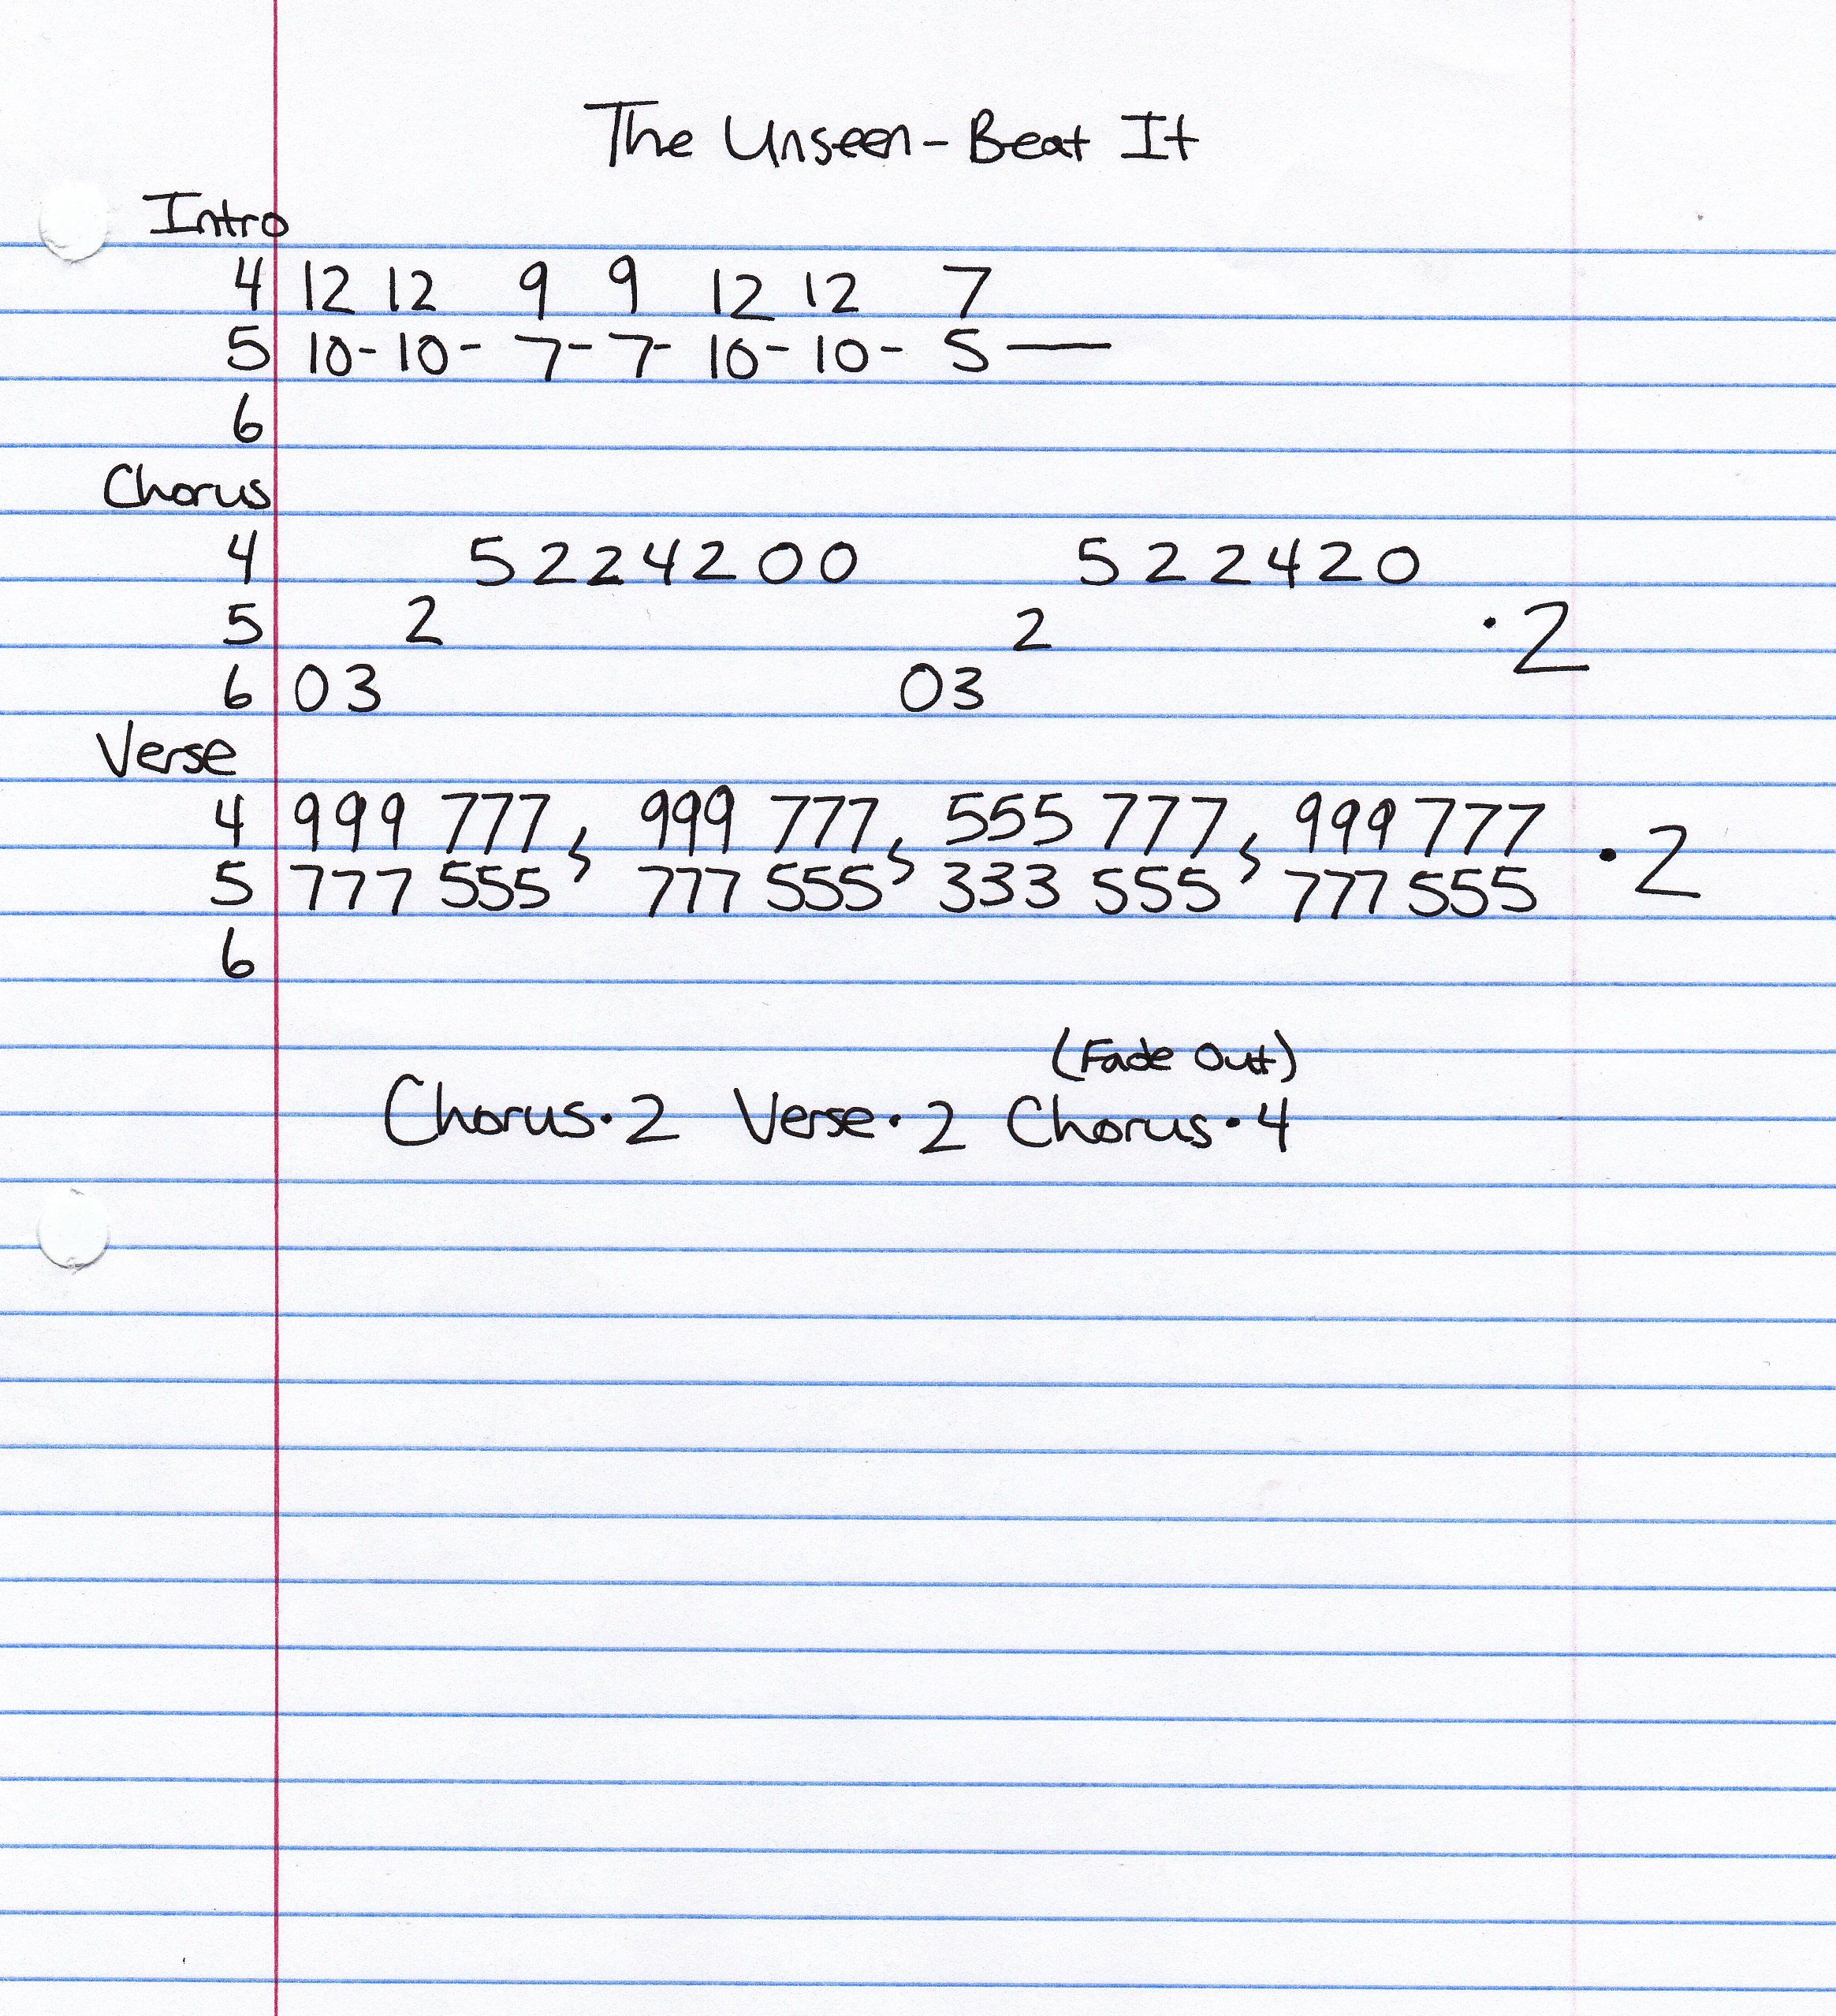 The Unseen - Beat It
Intro
4 12 12 9 9 12 12 7
5 10- 10- 7- 7- 10- 10- 5 —
6
Chorus
4 5 2 2 4 2 0 0 5 2 2 4 2 0
5 2 2 · 2
6 0 3 0 3
Verse
4 999 777, 999 777, 555 777, 999 777 · 2
5 777 555, 777 555, 333 555, 777 555
6
(Fade Out)
Chorus · 2 Verse · 2 Chorus · 4